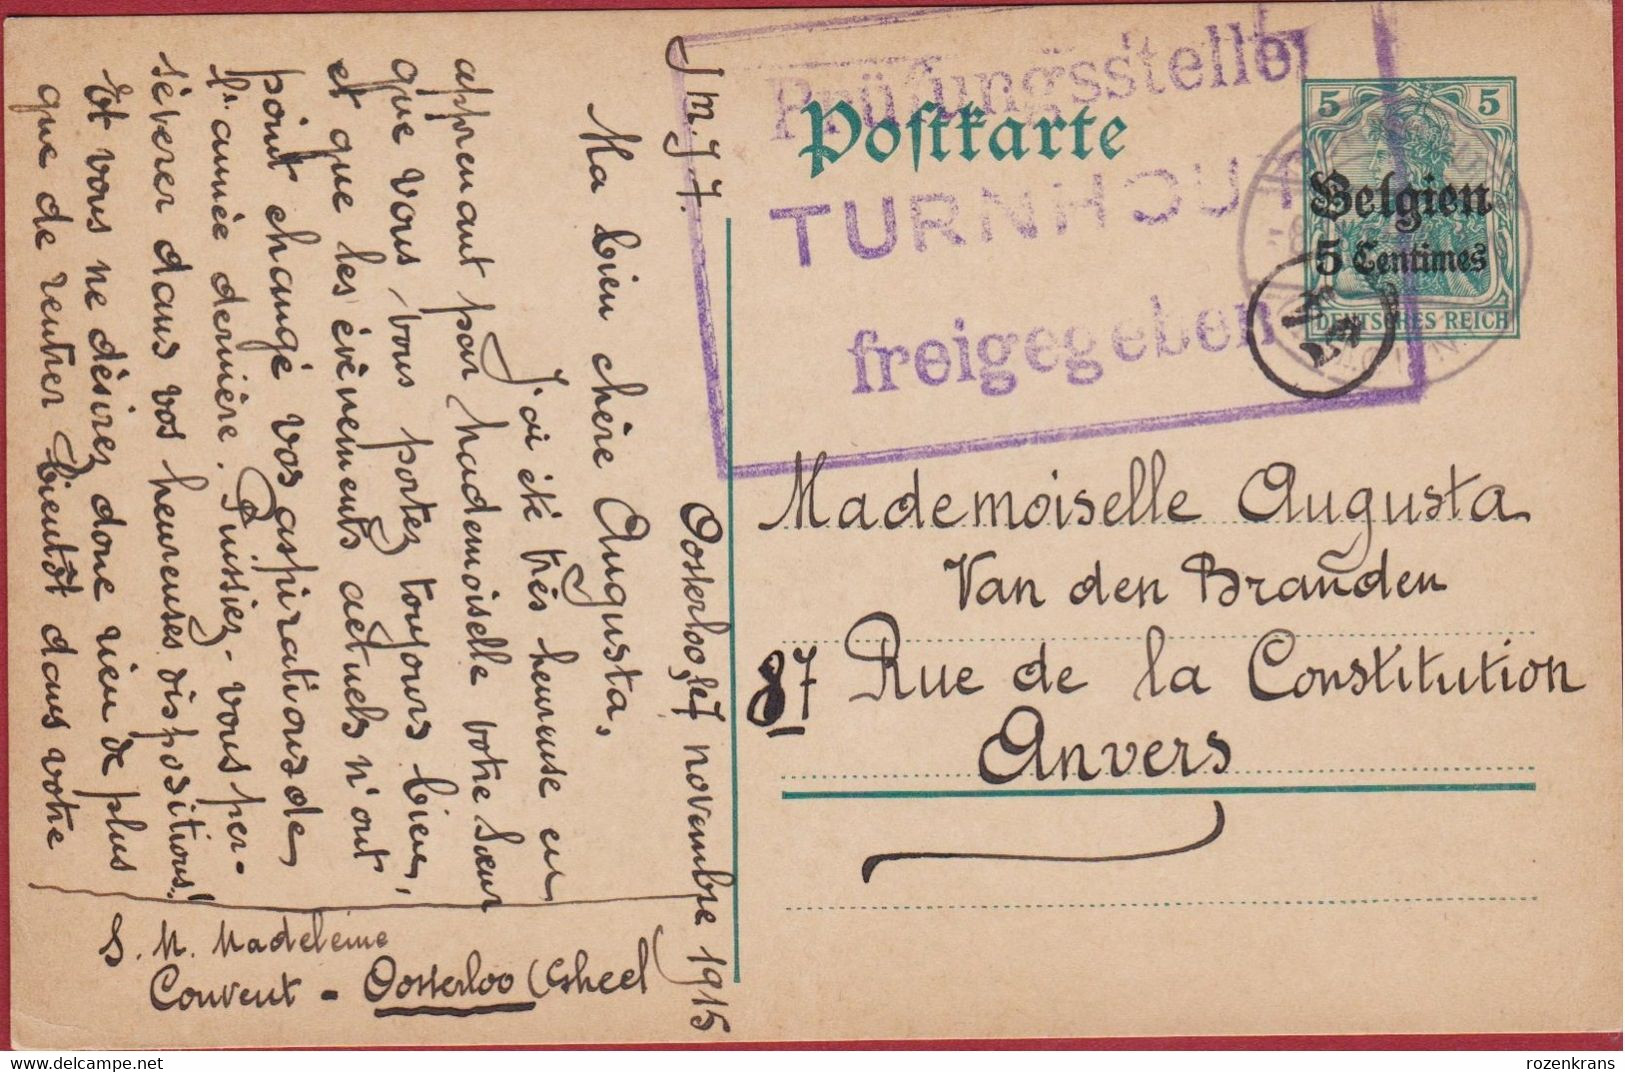 J. M. J. T.
Oosterloo, le 7 novembre 1915
Ma bien chère Augusta,
J'ai été très heureuse en
apprenant par Mademoiselle votre Sœur
que vous vous portez toujours bien,
et que les évènements actuels n'ont
point changé vos aspirations de
l'année dernière. Puissiez-vous per-
sévérer dans vos heureuses dispositions!
Et vous ne désirez donc rien de plus
que de rentrer bientôt dans votre
S. M. Madeleine
Couvent - Oosterloo (Gheel)
Prüfungsstelle
TURNHOUT
freigegeben
Postkarte
5 5
Belgien
5 Centimes
DEUTSCHES REICH
Mademoiselle Augusta
Van den Branden
87 Rue de la Constitution
Anvers
www.delcampe.net
rozenkrans